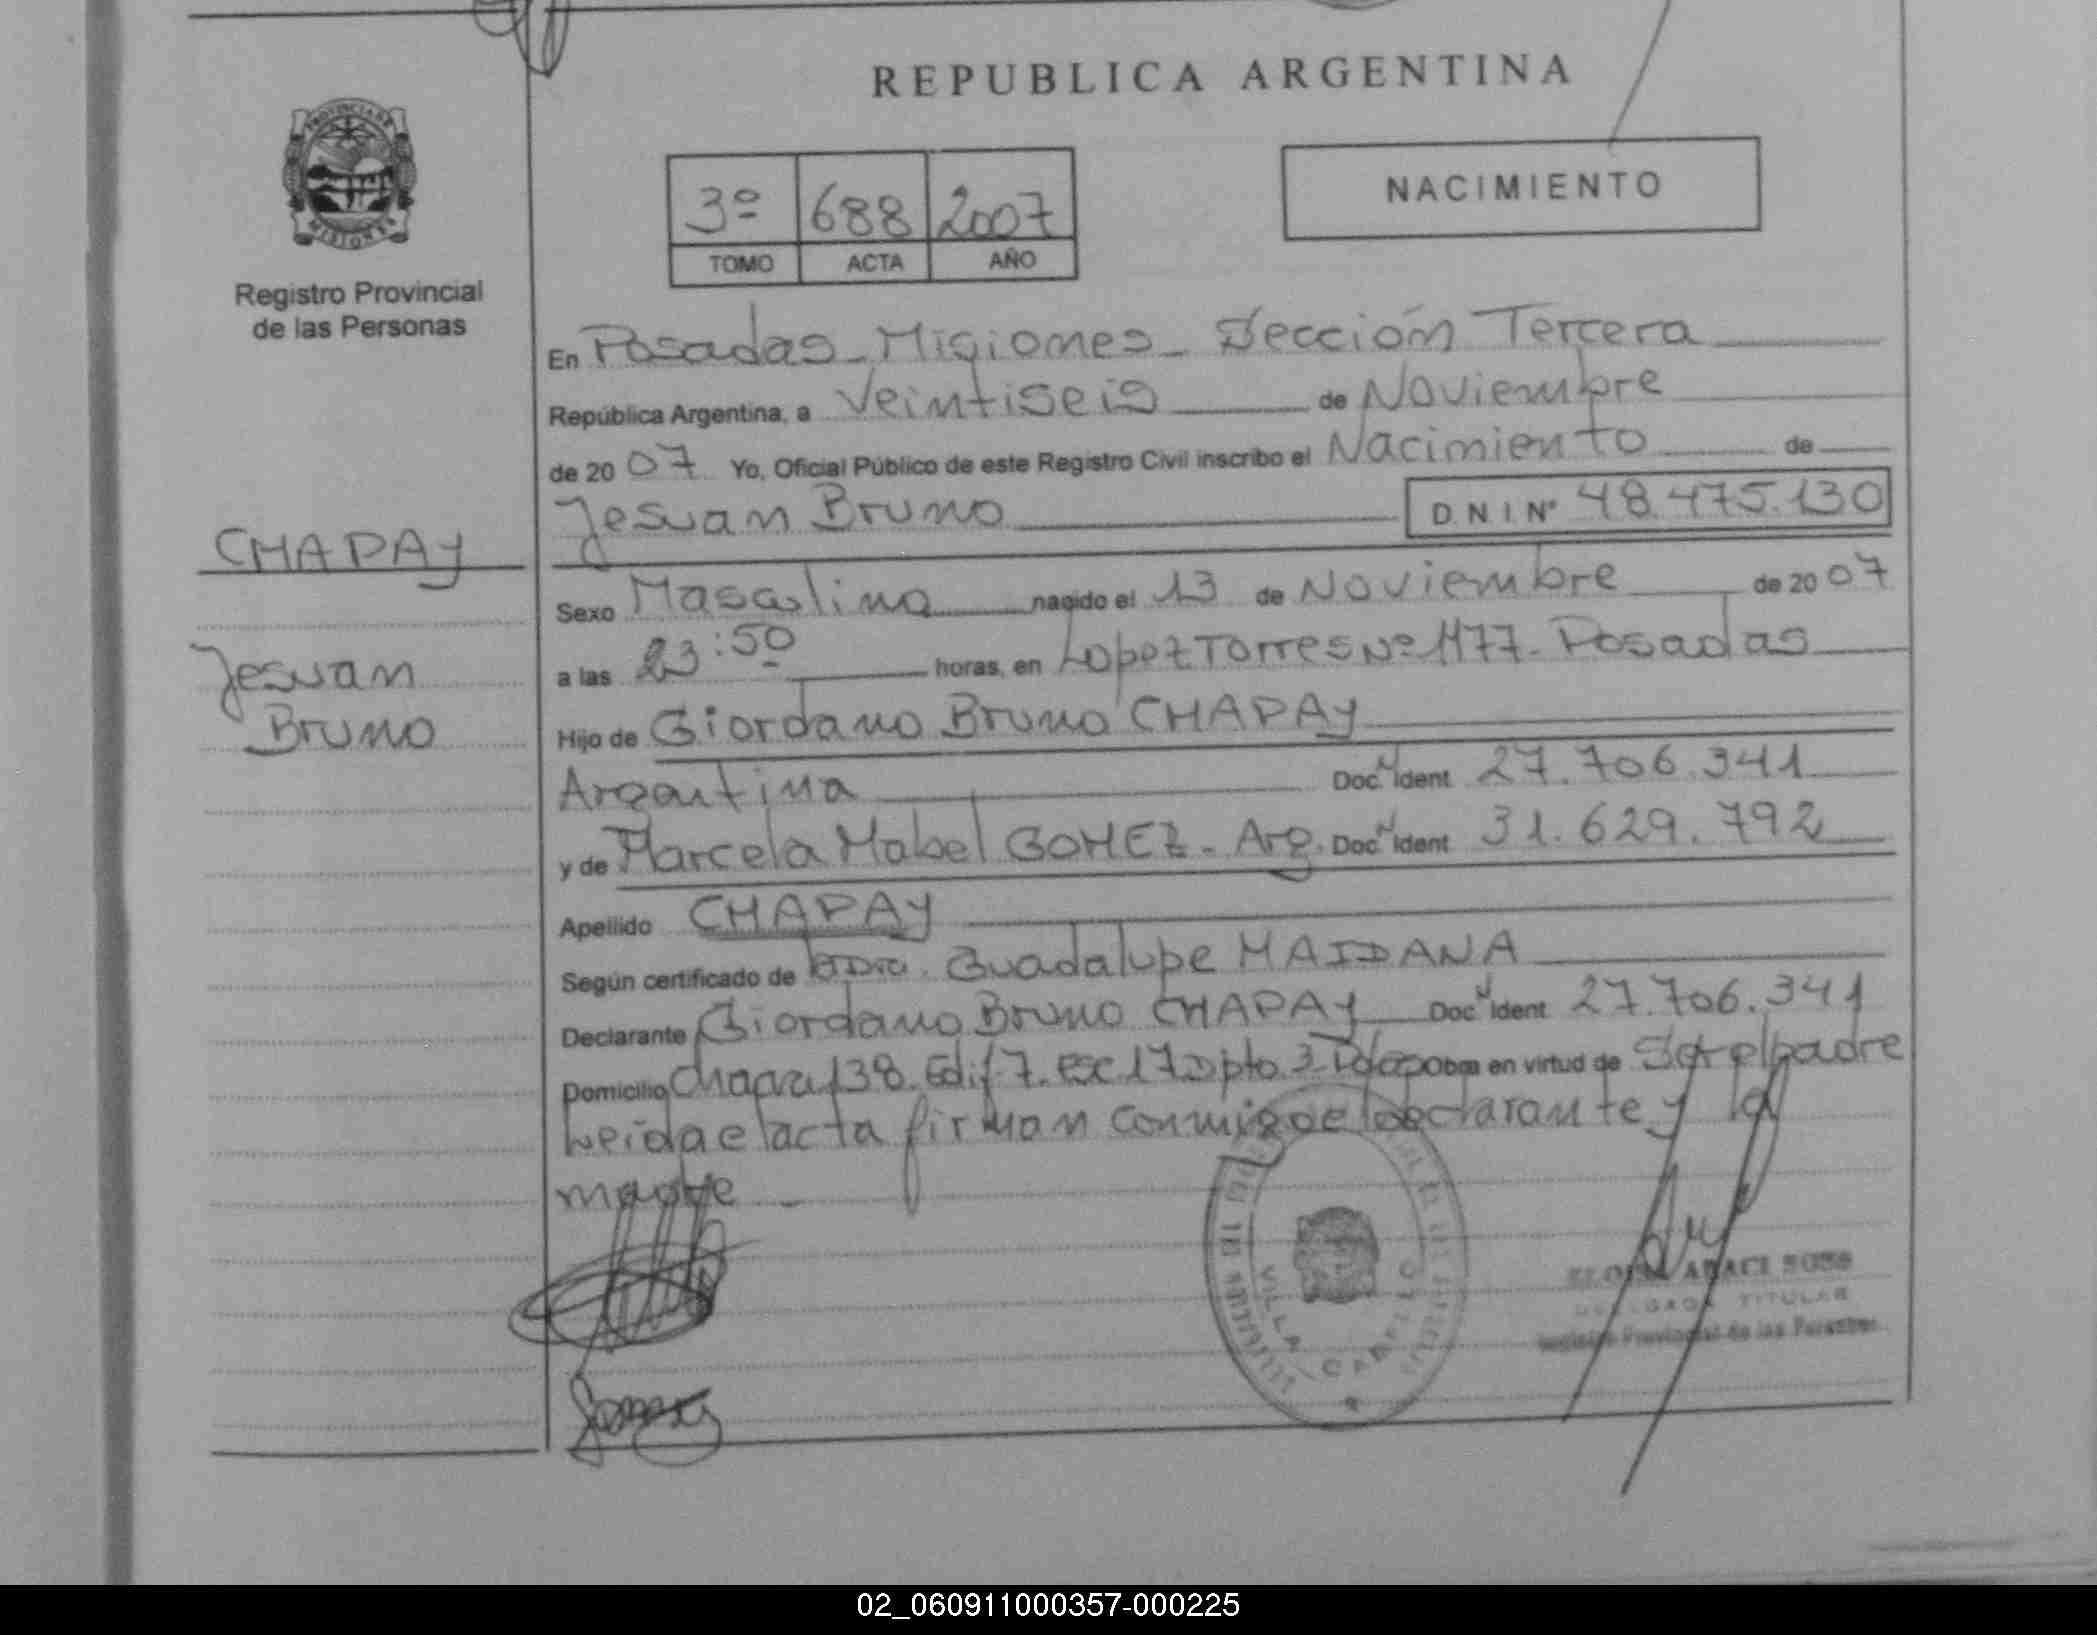 REPUBLICA ARGENTINA
PROVINCIA DE
MISIONES
Registro Provincial
de las Personas
3º 688 2007
TOMO ACTA AÑO
NACIMIENTO
En Posadas - Misiones - Sección Tercera
República Argentina, a Veintiseis de Noviembre
de 20 07 Yo, Oficial Público de este Registro Civil inscribo el Nacimiento de
Jesuan Bruno D N I Nº 48.475.130
CHAPAY
Jesuan
Bruno
Sexo Masculino nacido el 13 de Noviembre de 20 07
a las 23:50 horas, en Lopez Torres Nº 1177 - Posadas
Hijo de Giordano Bruno CHAPAY
Argentina Doc. Ident 27.706.341
y de Marcela Mabel GOMEZ - Arg. Doc. Ident 31.629.792
Apellido CHAPAY
Según certificado de Dra. Guadalupe MAIDANA
Declarante Giordano Bruno CHAPAY Doc. Ident 27.706.341
Domicilio 138. Edif 7. esc. 17 Dpto. 3 Obra en virtud de Ser el padre
Leida el acta firman conmigo el declarante y la
madre
VILLA CABELLO
TITULAR
Registro Provincial de las Personas
02_060911000357-000225